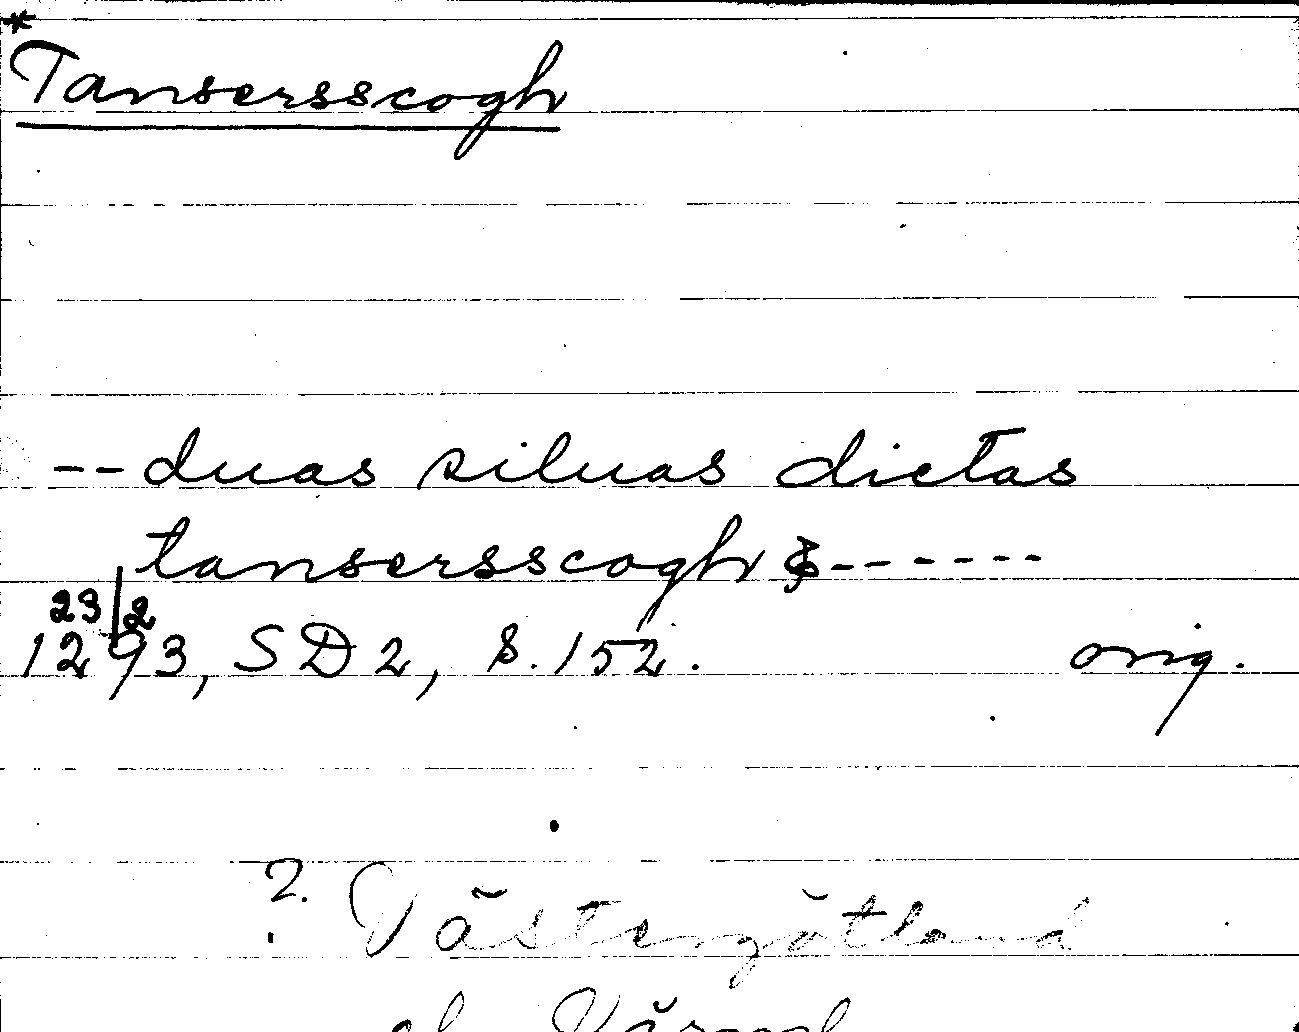 *
Tansersscogh
-- duas siluas dictas
tansersscogh & ------
23/2
1293, SD 2, s. 152. orig.
? Västergötland